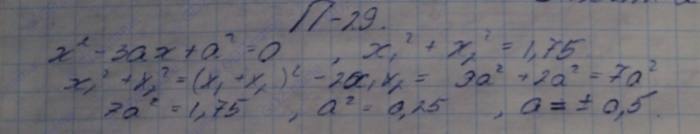 П-29.
x² - 3ax + a² = 0 , x₁² + x₂² = 1,75
x₁² + x₂² = (x₁ + x₂)² - 2x₁x₂ = 9a² + 2a² = 7a²
7a² = 1,75 , a² = 0,25 , a = ± 0,5.